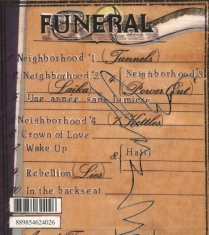 FUNERAL
Neighborhood #1 (Tunnels)
Neighborhood #2 (Laika)
Neighborhood #3 (Power Out)
Une année sans lumière
Neighborhood #4 (7 Kettles)
Crown of Love
7 Wake Up
8 Haïti
9. Rebellion (Lies)
10 In the backseat
889854624026